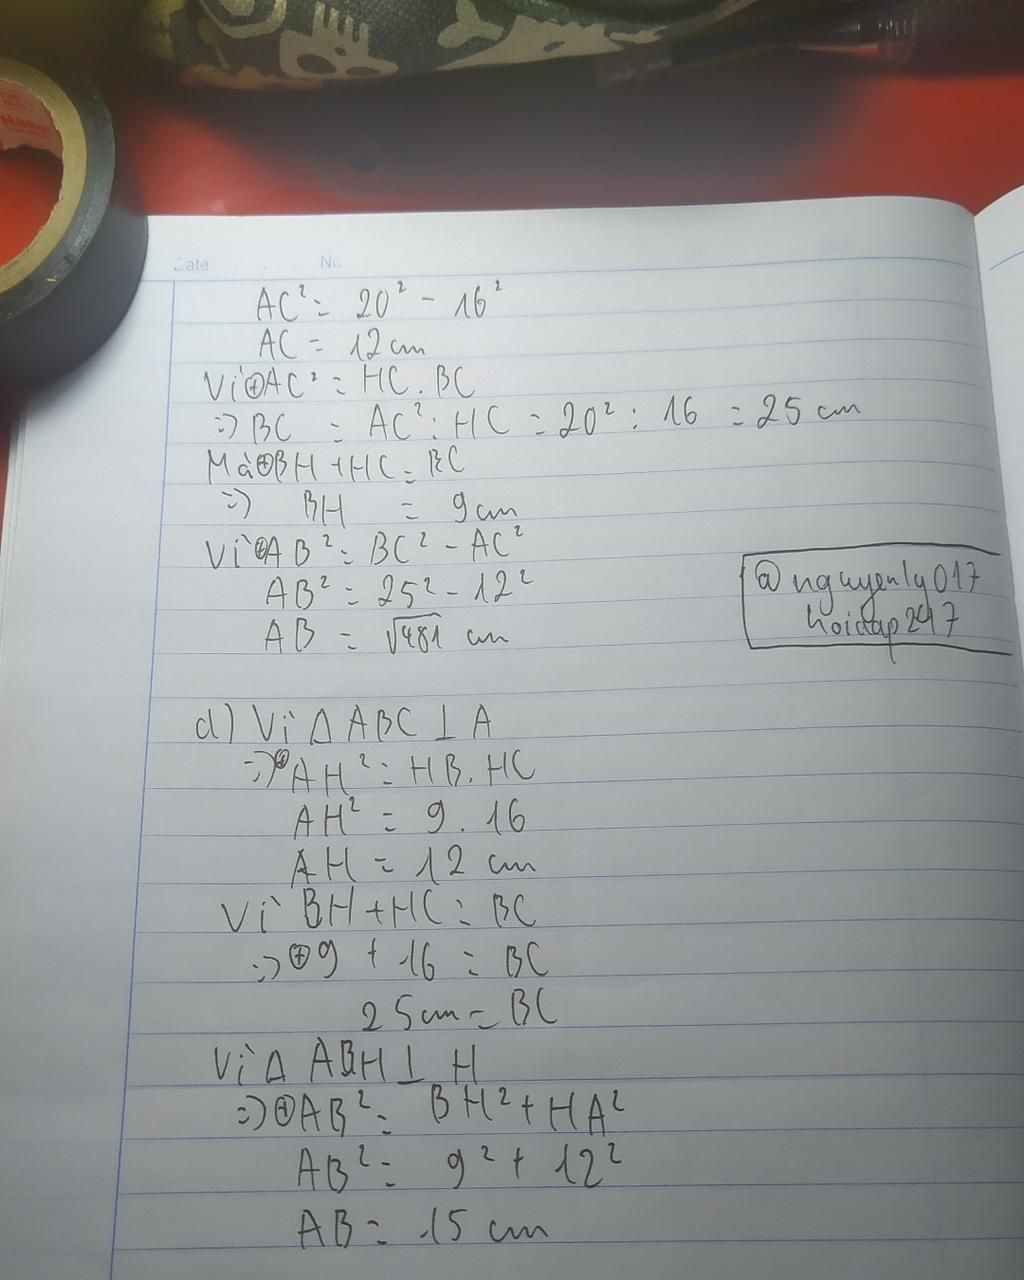 Date No.
AC² = 20² - 16²
AC = 12 cm
Vì ⊕ AC² = HC . BC
=> BC = AC² : HC = 20² : 16 = 25 cm
Mà ⊕ BH + HC = BC
=> BH = 9 cm
Vì ⊕ AB² = BC² - AC²
AB² = 25² - 12²
AB = √481 cm
@nguyenly017
hoidap247
d) Vì Δ ABC ⊥ A
=> ⊕ AH² = HB . HC
AH² = 9 . 16
AH = 12 cm
Vì BH + HC = BC
=> ⊕ 9 + 16 = BC
25 cm = BC
Vì Δ ABH ⊥ H
=> ⊕ AB² = BH² + HA²
AB² = 9² + 12²
AB = 15 cm